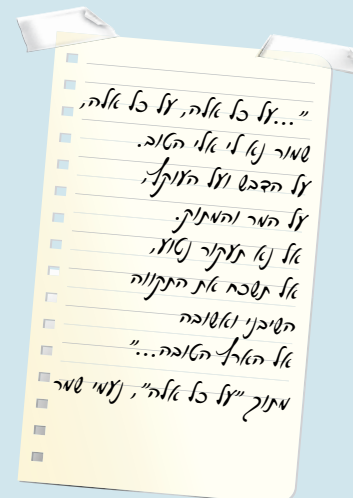 "...על כל אלה, על כל אלה,
שמור נא לי אלי הטוב.
על הדבש ועל העוקץ,
על המר והמתוק.
אל נא תעקור נטוע,
אל תשכח את התקווה
השיבני ואשובה
אל הארץ הטובה..."
מתוך "על כל אלה", נעמי שמר